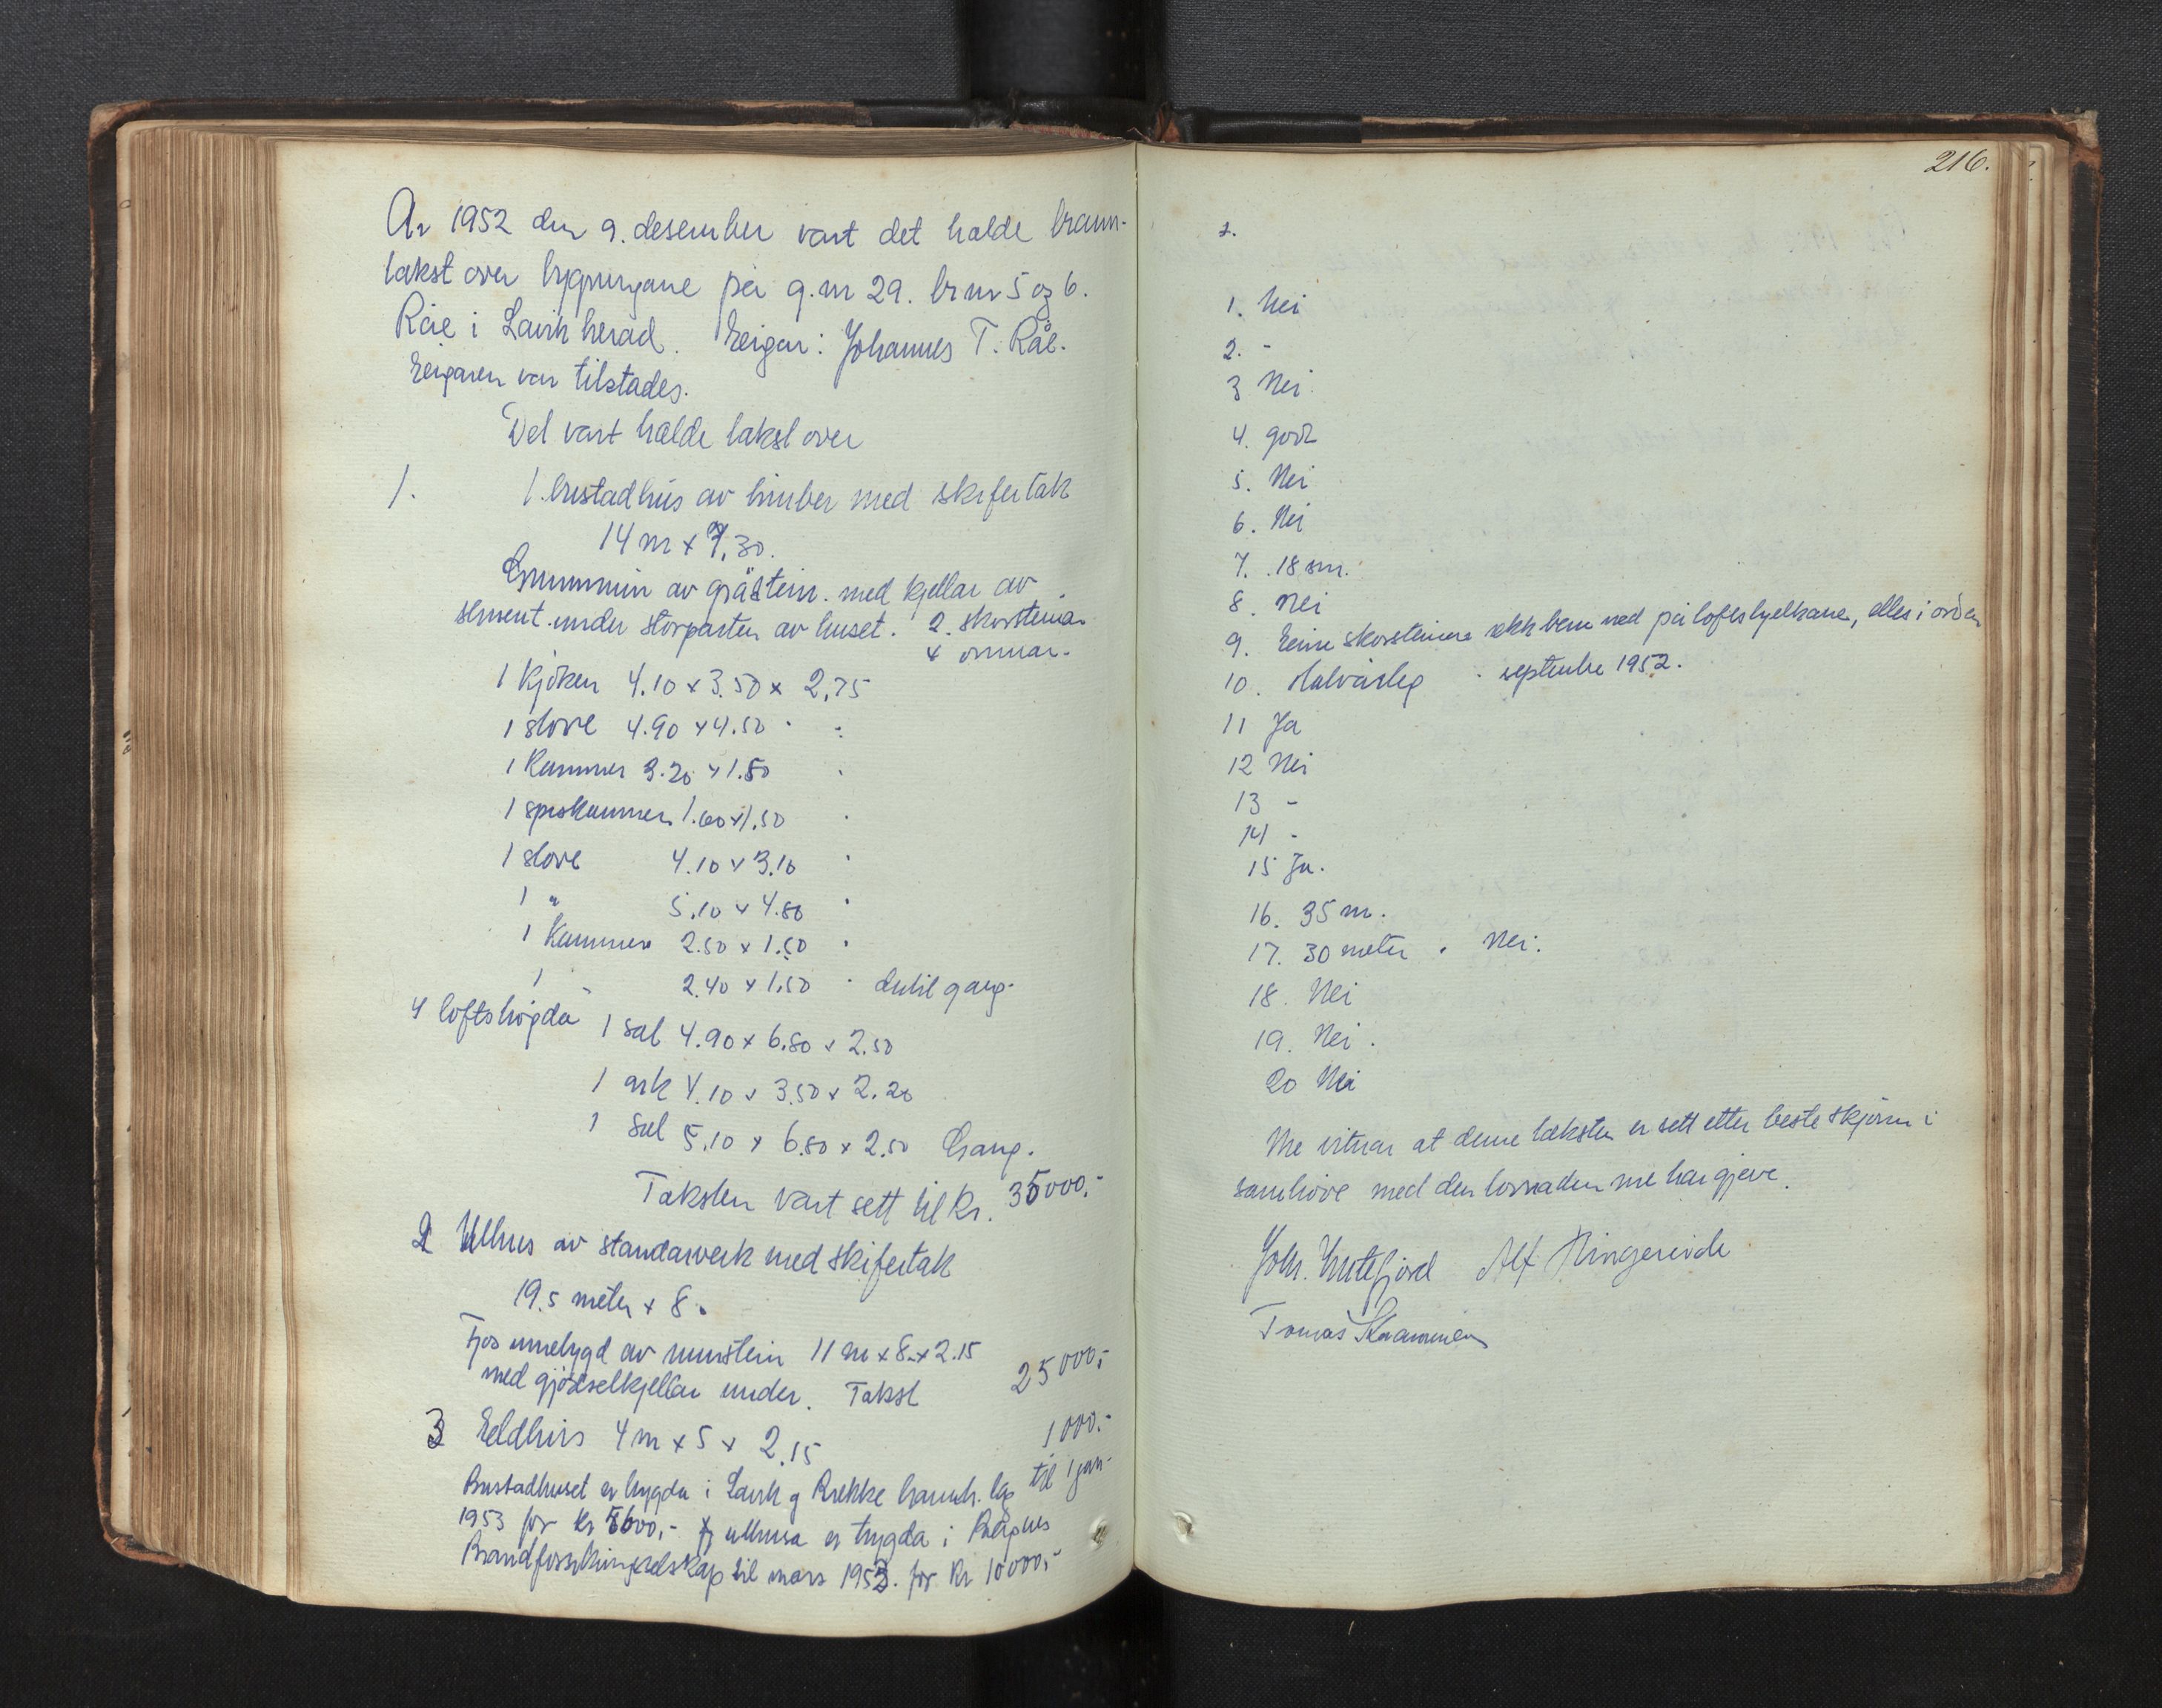 År 1952 den 9. desember vart det halde brann-
takst over bygningane på g.nr 29. br nr 5 og 6.
Råe i Lavik herad. Eigar: Johannes T. Råe.
Eigaren var tilstades.
Det vart halde takst over
1. 1. bustadhus av timber med skifertak
14 m x 7,30.
Grunnmur av gråstein. med kjellar av
sement. under storparten av huset. 2. skorsteinar
4 omnar.
1 kjöken 4.10 x 3.50 x 2,75
1 stove 4.90 x 4.50 " "
1 Kammer 3.20 x 1.50 "
1 spiskammer 1.60 x 1.50 "
1 stove 4.10 x 3.10 "
1 " 5.10 x 4.80 "
1 Kammer 2.50 x 1.50 "
1 " 2.40 x 1.50 " gang.
4 loftshögda
1 sal 4.90 x 6.80 x 2.50
1 ark 4.10 x 3.50 x 2.20
1 sal 5.10 x 6.80 x 2.50 Gang.
Taksten vart sett til kr. 35000,-
2 Uthus av standarverk med skifertak
19.5 meter x 8.
Fjös innebygd av murstein 11 m x 8 x 2.15
med gjödselkjellar under. Takst 25000,-
3 Eeldhus 4 m x 5 x 2.15 1000.-
Bustadhuset er trygda i Lavik og Brekke til 1 jan.
1953 for kr 8600,- uthusa er trygda i
til mars 1953. for kr 10000,-
216.
2.
1. Nei
2. -
3 Nei
4. god
5. Nei
6. Nei
7. 18 sm.
8. Nei
9. Eine skorsteinen ned på loftsbjelkane, elles i orden
10. Halvårleg. septembe 1952.
11 Ja
12 Nei
13 -
14 -
15 Ja.
16. 35 m.
17. 30 meter. Nei.
18. Nei
19. Nei.
20 Nei
Me vitnar at denne taksten er sett etter beste skjönn i
samhöve med den lovnaden me har gjeve.
Joh. Alf Ringereide
Tomas